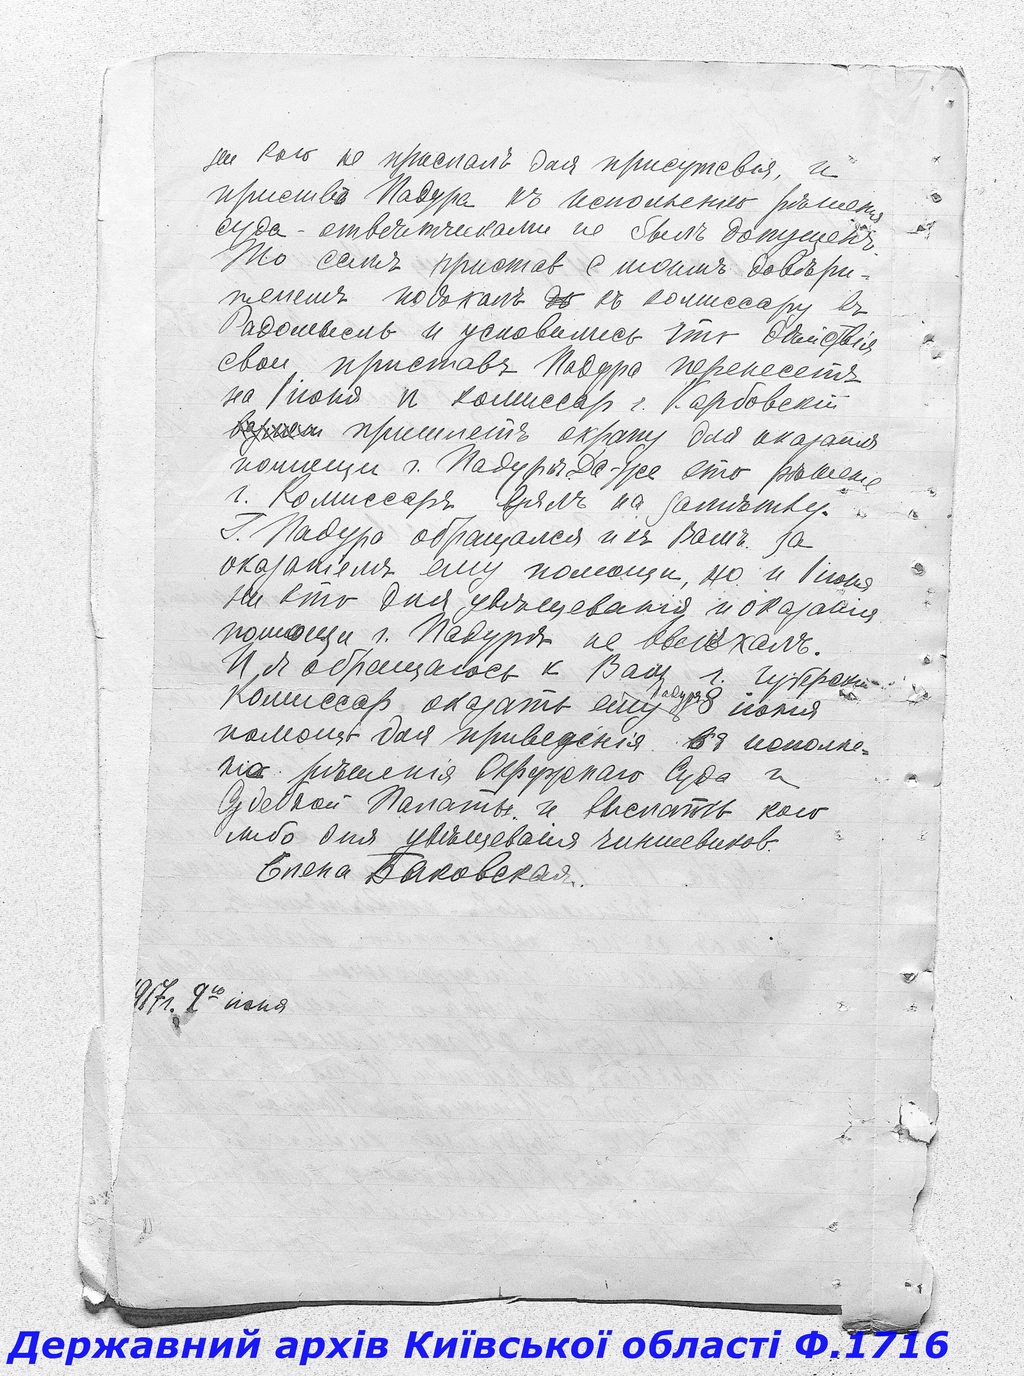 ни кого не прислалъ для присутсвія, и
приставъ Падура къ исполненію рѣшенія
суда - отвѣтчиками не былъ допущенъ.
То самъ пристав с моимъ довѣри-
телемъ поѣхалъ къ комиссару въ
Радомысль и условились что дѣйствія
свои приставъ Падура перенесетъ
на 1 іюня и комиссар г. Карбовскій
пришлетъ охрану для оказанія
помощи г. Падурѣ. Да-же это рѣшеніе
г. Комиссаръ взялъ на замѣтку.
Г. Падура обращался и къ Вамъ за
оказаніемъ ему помощи, но и 1 іюня
ни кто для увѣщеванія и оказанія
помощи г. Падурѣ не выѣхалъ.
И я обращаюсь к Вам г. губерн.
Комиссар оказать ему Падурѣ 8 іюня
помощь для приведенія въ исполне-
ніе рѣшенія Окружнаго Суда и
Судебной Палаты и выслать кого
либо для увѣщеванія чиншевиков.
Елена Баковская.
1917 г. 2го іюня
Державний архів Київської області Ф.1716